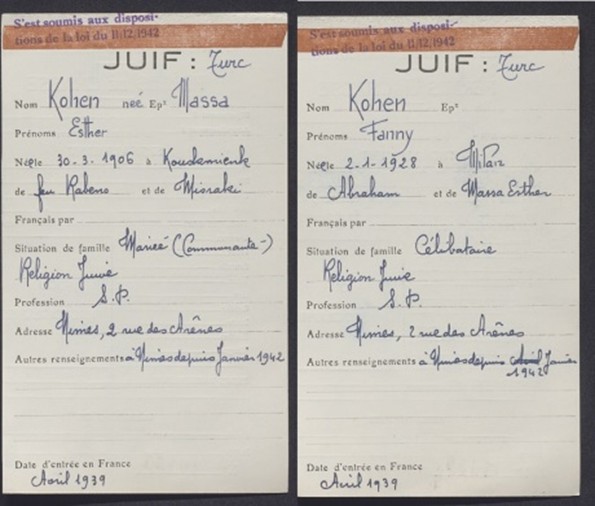 S'est soumis aux disposi-
tions de la loi du 11/12/1942
JUIF : Turc
Nom Kohen neé Epx Massa
Prénoms Esther
Né(e) le 30-3-1906 à
de feu et de
Français par
Situation de famille Mariée (Communauté)
Religion Juive
Profession S.P.
Adresse Nimes, 2 rue des Arênes
Autres renseignements à Nimes depuis Janvier 1942
Date d'entrée en France
Avril 1939
S'est soumis aux disposi-
tions de la loi du 11/12/1942
JUIF : Turc
Nom Kohen Epx
Prénoms Fanny
Né(e) le 2-1-1928 à
de Abraham et de Massa Esther
Français par
Situation de famille Célibataire
Religion Juive
Profession S.P.
Adresse Nimes, 2 rue des Arênes
Autres renseignements à Nimes depuis Avril Janvier
1942
Date d'entrée en France
Avril 1939